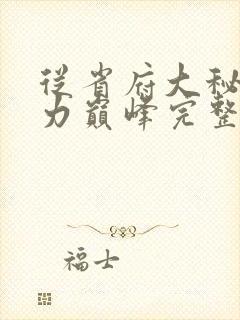 从省府大秘
力巅峰完整
福士